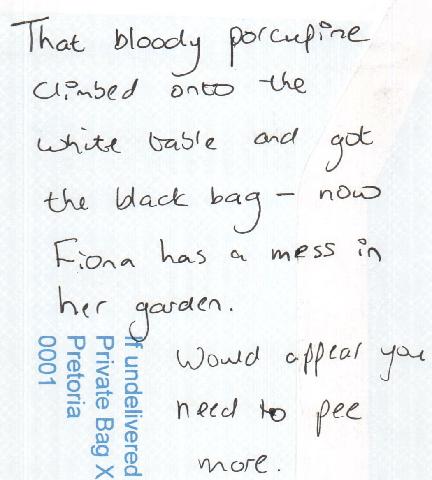 That bloody porcupine
climbed onto the
white table and got
the black bag – now
Fiona has a mess in
her garden.
Would appear you
need to pee
more.
If undelivered
Private Bag X
Pretoria
0001